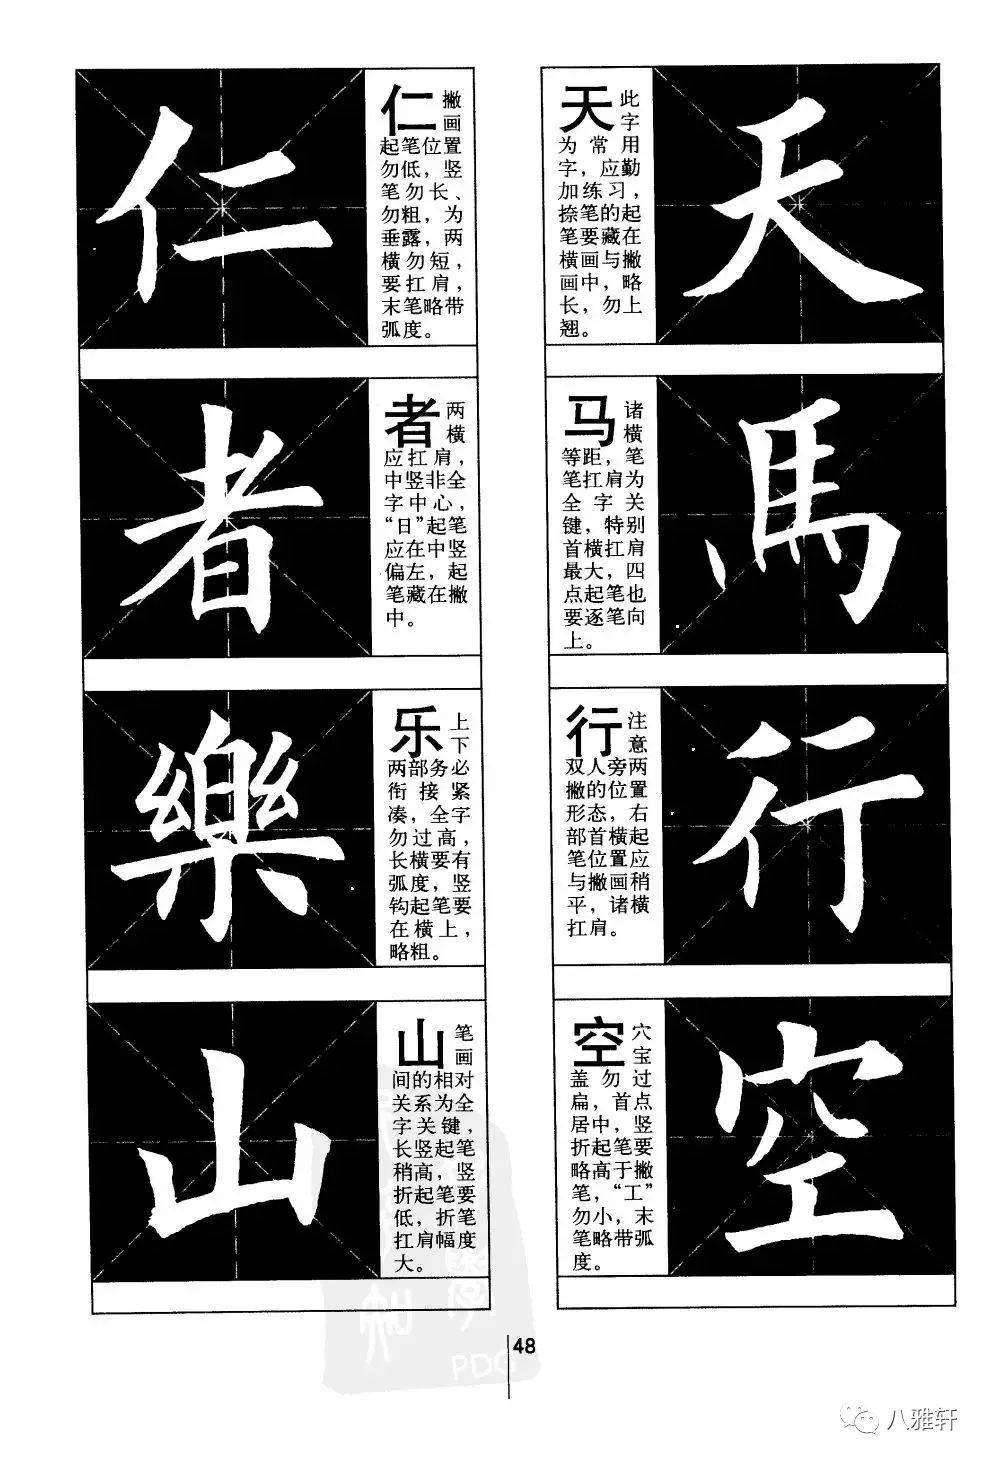 天
天
此
字
为常用
字，应勤
加练习，
捺笔的起
笔要藏在
横画与撇
画中，略
长，勿上
翘。
馬
马
诸
横
等距，笔
笔扛肩为
全字关
键，特别
首横扛肩
最大，四
点起笔也
要逐笔向
上。
行
行
注
意
双人旁两
撇的位置
形态，右
部首横起
笔位置应
与撇画稍
平，诸横
扛肩。
空
空
穴
宝
盖勿过
扁，首点
居中，竖
折起笔要
略高于撇
笔，“工”
勿小，末
笔略带弧
度。
仁
仁
撇
画
起笔位置
勿低，竖
笔勿长、
勿粗，为
垂露，两
横勿短，
要扛肩，
末笔略带
弧度。
者
者
两
横
应扛肩，
中竖非全
字中心，
“日”起笔
应在中竖
偏左，起
笔藏在撇
中。
樂
乐
上
下
两部务必
衔接紧
凑，全字
勿过高，
长横要有
弧度，竖
钩起笔要
在横上，
略粗。
山
山
笔
画
间的相对
关系为全
字关键，
长竖起笔
稍高，竖
折起笔要
低，折笔
扛肩幅度
大。
PDG
48
八雅轩